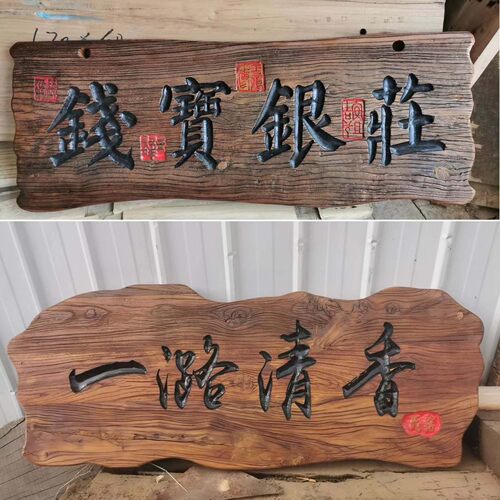 錢寶銀莊
一潞清香